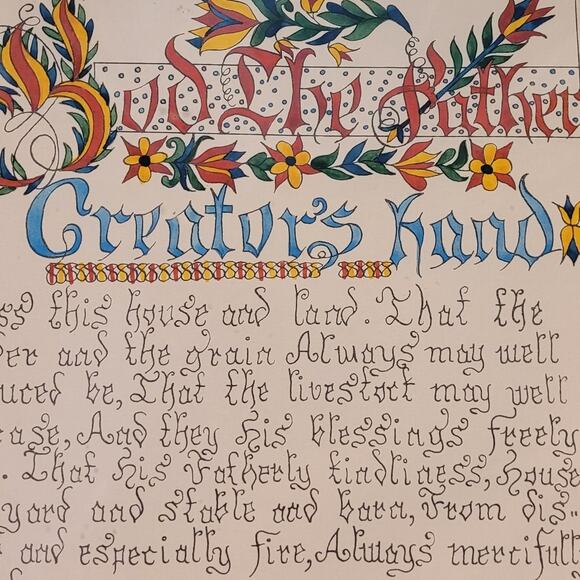 God The Father
Creator's hand
ss this house and land. That the
er and the grain Always may well
uced be, That the livestock may well
ease, And they his blessings freely
. That his Fatherly kindliness, house
yard and stable and barn, From dis-
and especially fire, Always mercifull